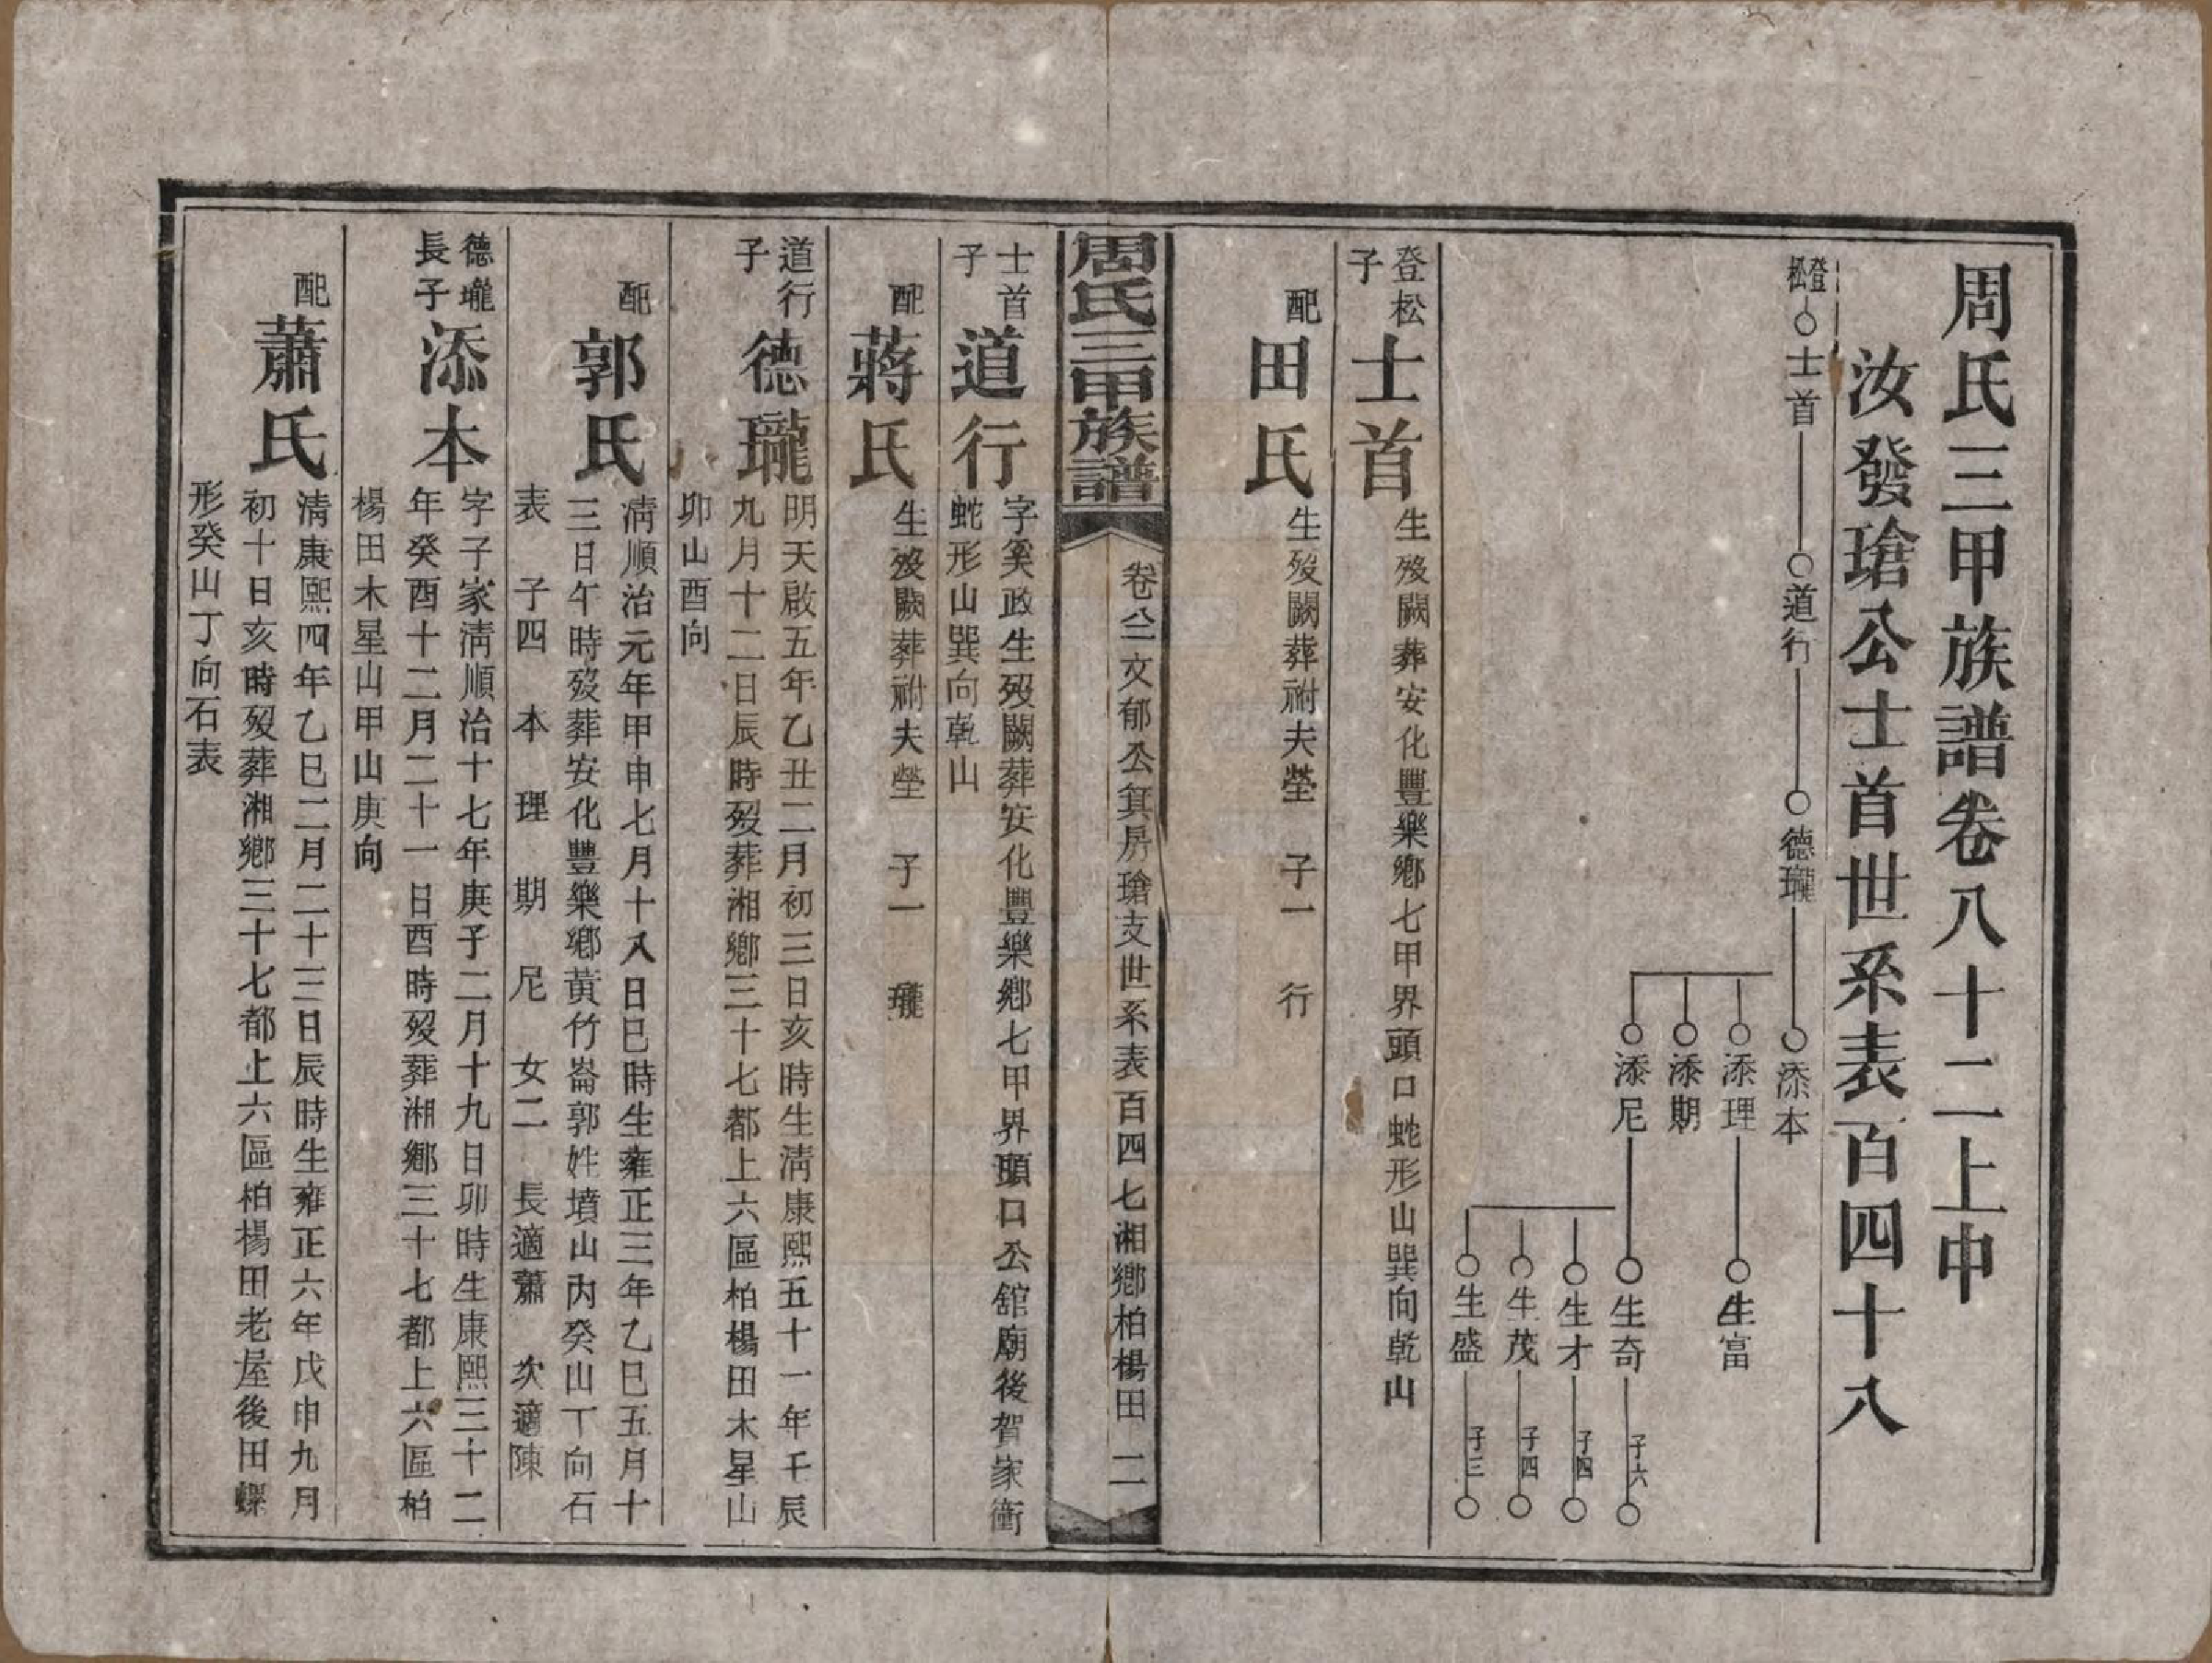 周氏三甲族譜卷八十二上中
汝發瑲公士首世系表百四十八
登松
士首
道行
德瓏
添本
添理
添期
添尼
生富
生奇
生才
生茂
生盛
子六
子四
子四
子三
登松
子
士首
生歿闕葬安化豐樂鄉七甲界頭口蛇形山巽向乾山
配
田氏
生歿闕葬祔夫塋 子一 行
周氏三甲族譜
卷八二文郁公箕房瑲支世系表百四七湘鄉柏楊田 二
士首
子
道行
字奚政生歿闕葬安化豐樂鄉七甲界頭口公舘廟後賀家衝
蛇形山巽向乾山
配
蔣氏
生歿闕葬祔夫塋 子一 瓏
道行
子
德瓏
明天啟五年乙丑二月初三日亥時生淸康熙五十一年壬辰
九月十二日辰時歿葬湘鄉三十七都上六區柏楊田木星山
卯山酉向
配
郭氏
淸順治元年甲申七月十八日巳時生雍正三年乙巳五月十
三日午時歿葬安化豐樂鄉黃竹崙郭姓墳山內癸山丁向石
表 子四 本 理 期 尼 女二 長適蕭 次適陳
德瓏
長子
添本
字子家淸順治十七年庚子二月十九日卯時生康熙三十二
年癸酉十二月二十一日酉時歿葬湘鄉三十七都上六區柏
楊田木星山甲山庚向
配
蕭氏
淸康熙四年乙巳二月二十三日辰時生雍正六年戊申九月
初十日亥時歿葬湘鄉三十七都上六區柏楊田老屋後田螺
形癸山丁向石表